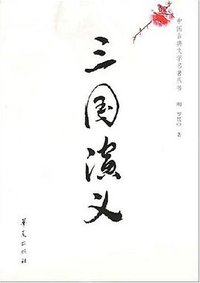 中国古典文学名著丛书
三国演义
明 罗贯中 著
华夏出版社